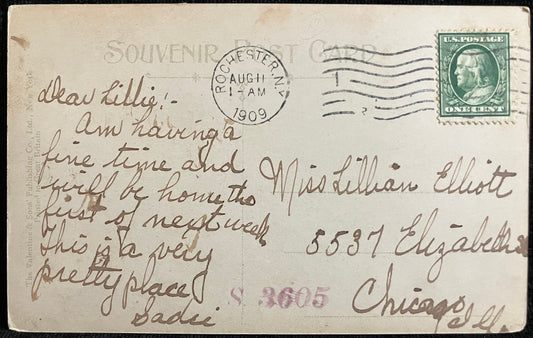 SOUVENIR POST CARD
ROCHESTER, N.Y.
AUG 11
1-AM
1909
U.S. POSTAGE
ONE CENT
Dear Lillie!-
Am having a
fine time and
will be home the
first of next week
This is a very
pretty place
Sadie
Miss Lillian Elliott
5537 Elizabeth St
Chicago
Ill.
S 3605
The Valentine & Sons' Publishing Co., Ltd., New York
Printed in Great Britain